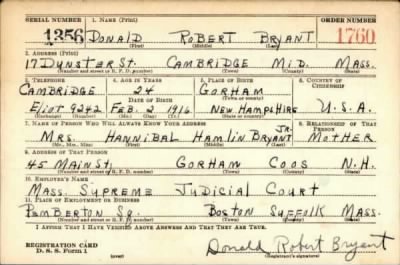 SERIAL NUMBER 1. NAME (Print) ORDER NUMBER
1356 DONALD ROBERT BRYANT 1760
(First) (Middle) (Last)
2. ADDRESS (Print)
17 DUNSTER ST. CAMBRIDGE MID. MASS.
(Number and street or R. F. D. number) (Town) (County) (State)
3. TELEPHONE 4. AGE IN YEARS 5. PLACE OF BIRTH 6. COUNTRY OF CITIZENSHIP
CAMBRIDGE 24 GORHAM
DATE OF BIRTH (Town or county)
ELIOT 9242 FEB. 2 1916 NEW HAMPSHIRE U.S.A.
(Exchange) (Number) (Mo.) (Day) (Yr.) (State or country)
7. NAME OF PERSON WHO WILL ALWAYS KNOW YOUR ADDRESS 8. RELATIONSHIP OF THAT PERSON
MRS. HANNIBAL HAMLIN BRYANT JR. MOTHER
(Mr., Mrs., Miss) (First) (Middle) (Last)
9. ADDRESS OF THAT PERSON
45 MAIN ST. GORHAM COOS N.H.
(Number and street or R. F. D. number) (Town) (County) (State)
10. EMPLOYER'S NAME
MASS. SUPREME JUDICIAL COURT
11. PLACE OF EMPLOYMENT OR BUSINESS
PEMBERTON SQ. BOSTON SUFFOLK MASS.
(Number and street or R. F. D. number) (Town) (County) (State)
I AFFIRM THAT I HAVE VERIFIED ABOVE ANSWERS AND THAT THEY ARE TRUE.
REGISTRATION CARD
D. S. S. Form 1 (over) Donald Robert Bryant
(Registrant's signature)